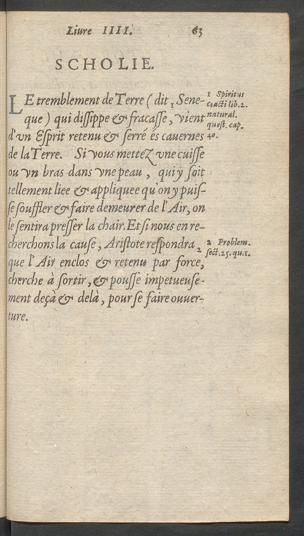 Liure IIII. 63
SCHOLIE.
LE tremblement de Terre (dit ¹ Sene-
que) qui dissippe & fracasse, vient
d'vn Esprit retenu & serré és cauernes
de la Terre. Si vous mettez vne cuisse
ou vn bras dans vne peau, qui y soit
tellement liee & appliquee qu'on y puis-
se souffler & faire demeurer de l'Air, on
le sentira presser la chair. Et si nous en re-
cherchons la cause, Aristote respondra, ²
que l'Air enclos & retenu par force,
cherche à sortir, & pousse impetueuse-
ment deçà & delà, pour se faire ouuer-
ture.
1 Spiritus
lib. 2.
natural.
quæst. cap.
40.
2 Problem.
sect. 25. qu. 1.